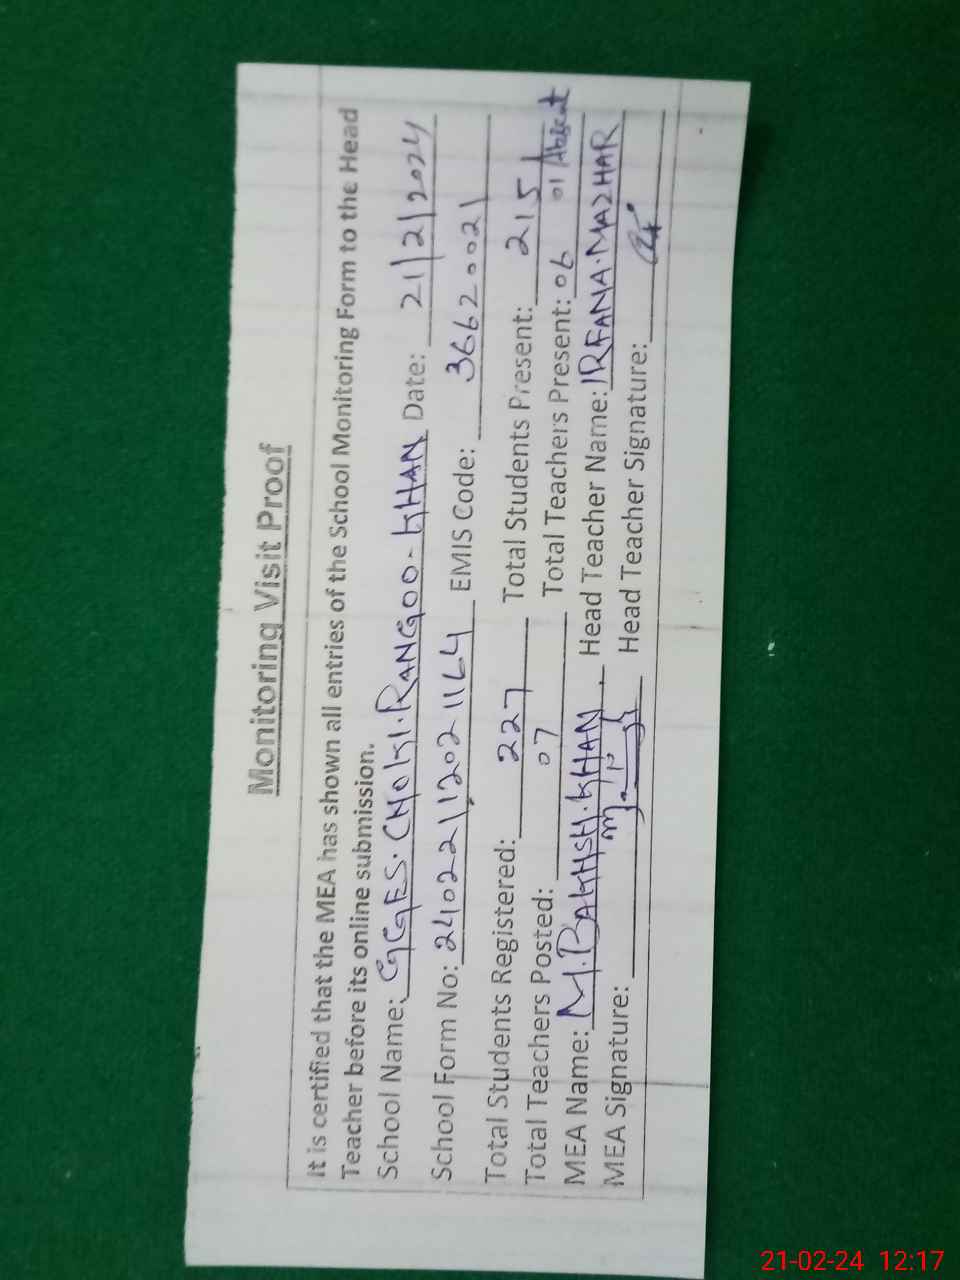 Monitoring Visit Proof
It is certified that the MEA has shown all entries of the School Monitoring Form to the Head
Teacher before its online submission.
School Name: GGES. CHOKI. RANGOO-KHAN Date: 21/2/2024
School Form No: 2402211202 1164 EMIS Code: 36620021
Total Students Registered: 227 Total Students Present: 215
Total Teachers Posted: 07 Total Teachers Present: 06 01 Absent
MEA Name: M. BAKHSH. KHAN. Head Teacher Name: IRFANA. MAZHAR
MEA Signature: Head Teacher Signature:
21-02-24 12:17